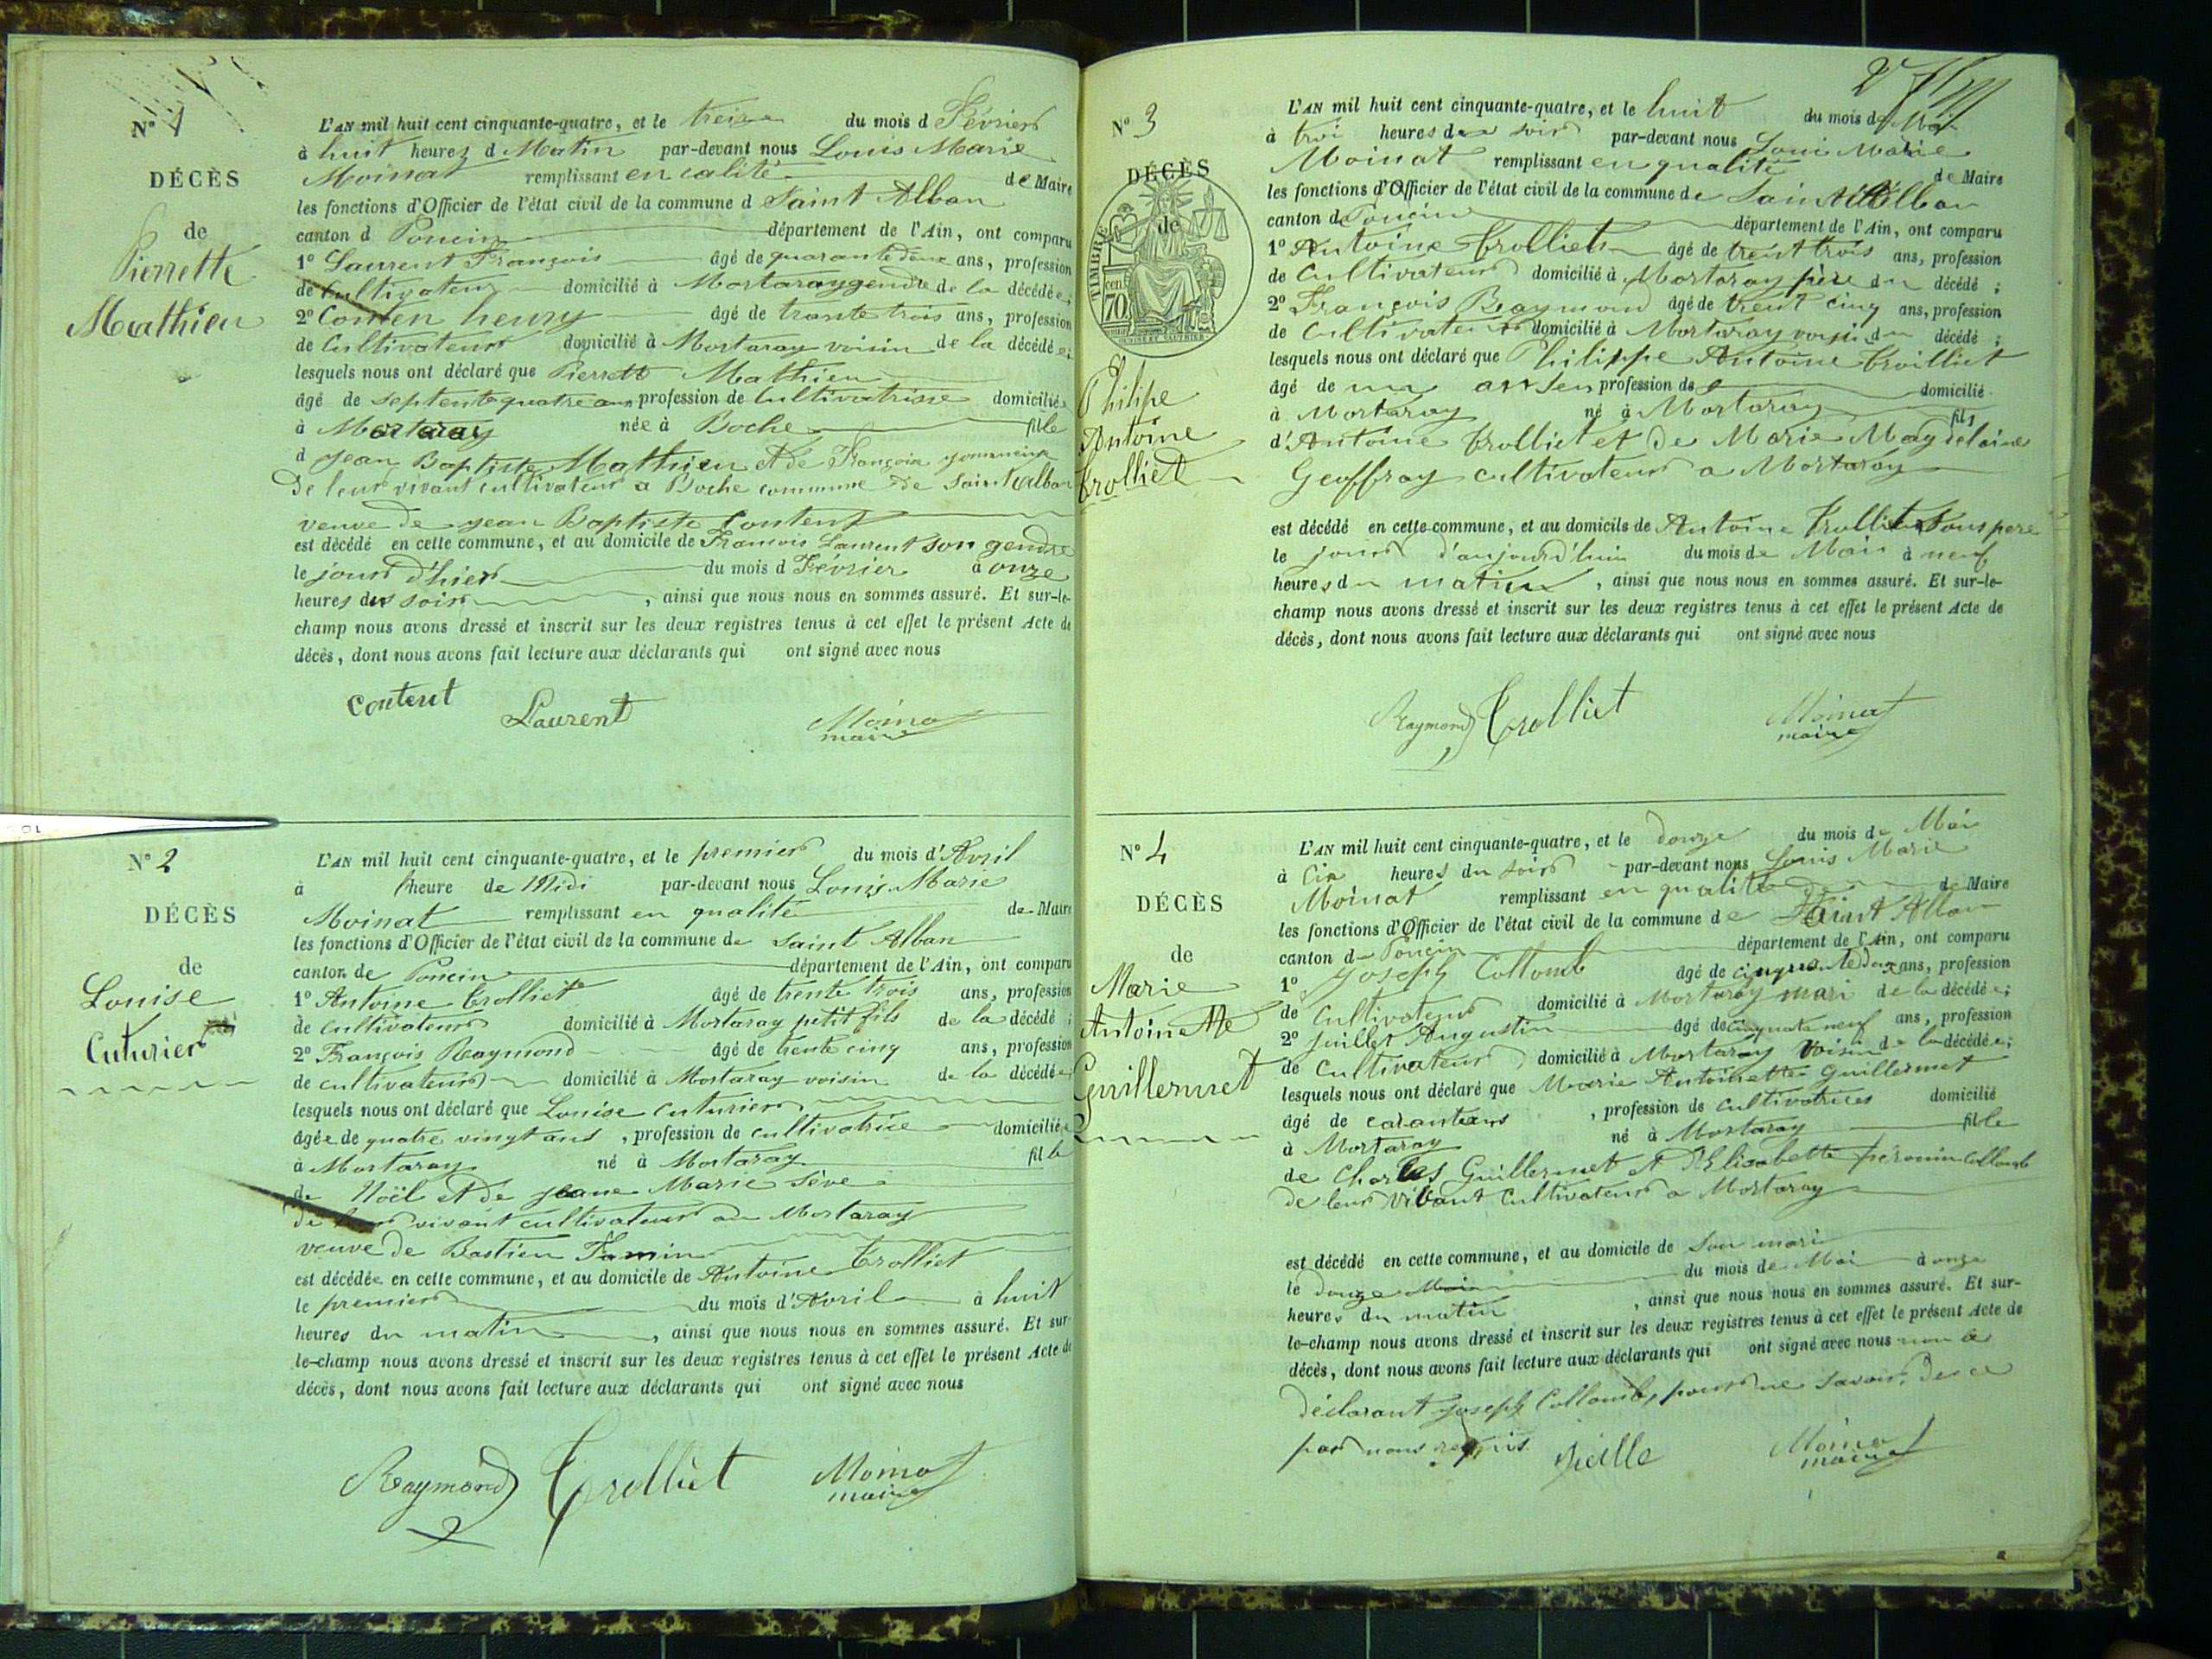 N° 1
DÉCÈS
de
Pierrette
Mathieu
L'AN mil huit cent cinquante-quatre, et le treize du mois d Février
à huit heures d Matin par-devant nous Louis Marie
Moinat remplissant en calité de Maire
les fonctions d'Officier de l'état civil de la commune d Saint Alban
canton d Poncin département de l'Ain, ont comparu
1° Laurent François âgé de quarante deux ans, profession
de Cultivateur domicilié à Mortaray gendre de la décédée;
2° Conten henry âgé de trante trois ans, profession
de Cultivateur domicilié à Mortaray voisin de la décédée;
lesquels nous ont déclaré que Pierrett Mathieu
âgé de septente quatre ans profession de Cultivatrisse domiciliée
à Mortaray née à Boche fille
d jean Baptiste Mathieu et de François
de leur vivant cultivateur a Boche commune de Saint Alban
veuve de jean Baptiste Content
est décédé en cette commune, et au domicile de François Laurent son gendre
le jour d'hier du mois d Février à onze
heures du soir, ainsi que nous nous en sommes assuré. Et sur-le-
champ nous avons dressé et inscrit sur les deux registres tenus à cet effet le présent Acte de
décès, dont nous avons fait lecture aux déclarants qui ont signé avec nous
Content Laurent Moinat
maire
N° 2
DÉCÈS
de
Louise
Cuturier
L'AN mil huit cent cinquante-quatre, et le premier du mois d'Avril
à heure de Midi par-devant nous Louis Marie
Moinat remplissant en qualité de Maire
les fonctions d'Officier de l'état civil de la commune de Saint Alban
canton de Poncin département de l'Ain, ont comparu
1° Antoine Trolliet âgé de trente trois ans, profession
de cultivateur domicilié à Mortaray petit fils de la décédé;
2° François Raymond âgé de trente cinq ans, profession
de cultivateur domicilié à Mortaray voisin de la décédée
lesquels nous ont déclaré que Louise Cuturier
âgée de quatre vingt ans, profession de cultivatrice domiciliée
à Mortaray né à Mortaray fille
de Noël et de jeane Marie Sève
de leur vivant cultivateur au Mortaray
veuve de Bastien Famin
est décédée en cette commune, et au domicile de Antoine Trolliet
le premier du mois d'Avril à huit
heures du matin, ainsi que nous nous en sommes assuré. Et sur-
le-champ nous avons dressé et inscrit sur les deux registres tenus à cet effet le présent Acte de
décès, dont nous avons fait lecture aux déclarants qui ont signé avec nous
Raymond Trolliet Moinat
maire
2
N° 3
DÉCÈS
de
TIMBRE
70 cen
Philipe
Antoine
Trolliet
L'AN mil huit cent cinquante-quatre, et le huit du mois de Mai
à troi heures du soir par-devant nous Loui Marie
Moinat remplissant en qualité de Maire
les fonctions d'Officier de l'état civil de la commune de Saint Alban
canton de Poncin département de l'Ain, ont comparu
1° Antoine Trolliet âgé de trent trois ans, profession
de Cultivateur domicilié à Mortaray père du décédé;
2° François Raymond âgé de trent cinq ans, profession
de Cultivateur domicilié à Mortaray voisin du décédé;
lesquels nous ont déclaré que Philippe Antoine Trolliet
âgé de un an profession de domicilié
à Mortaray né à Mortaray fils
d'Antoine Trolliet et de Marie Magdelaine
Geoffray cultivateur a Mortaray
est décédé en cette commune, et au domicile de Antoine Trolliet Son pere
le jour d'aujourd'huis du mois de Mai à neuf
heures du matin, ainsi que nous nous en sommes assuré. Et sur-le-
champ nous avons dressé et inscrit sur les deux registres tenus à cet effet le présent Acte de
décès, dont nous avons fait lecture aux déclarants qui ont signé avec nous
Raymond Trolliet Moinat
maire
N° 4
DÉCÈS
de
Marie
Antoinette
Guillermet
L'AN mil huit cent cinquante-quatre, et le douze du mois de Mai
à Cin heures du soir par-devant nous Louis Marie
Moinat remplissant en qualité de Maire
les fonctions d'Officier de l'état civil de la commune de Saint Alban
canton de Poncin département de l'Ain, ont comparu
1° Joseph Collomb âgé de cinquante deux ans, profession
de Cultivateur domicilié à Mortaray mari de la décédée;
2° juillet Augustin âgé de cinquante neuf ans, profession
de Cultivateur domicilié à Mortaray Voisin de la décédée;
lesquels nous ont déclaré que Marie Antoinette Guillermet
âgé de carante ans, profession de cultivatrices domicilié
à Mortaray né à Mortaray fille
de Charles Guillermet et d'Elisabette peronin Collomb
de leur vivant Cultivateur a Mortaray
est décédé en cette commune, et au domicile de son mari
le douze Mai du mois de Mai à onze
heures du matin, ainsi que nous nous en sommes assuré. Et sur-
le-champ nous avons dressé et inscrit sur les deux registres tenus à cet effet le présent Acte de
décès, dont nous avons fait lecture aux déclarants qui ont signé avec nous non le
déclarant joseph Collomb, pour ne savoir, de ce
par nous requis. Moinat
maire